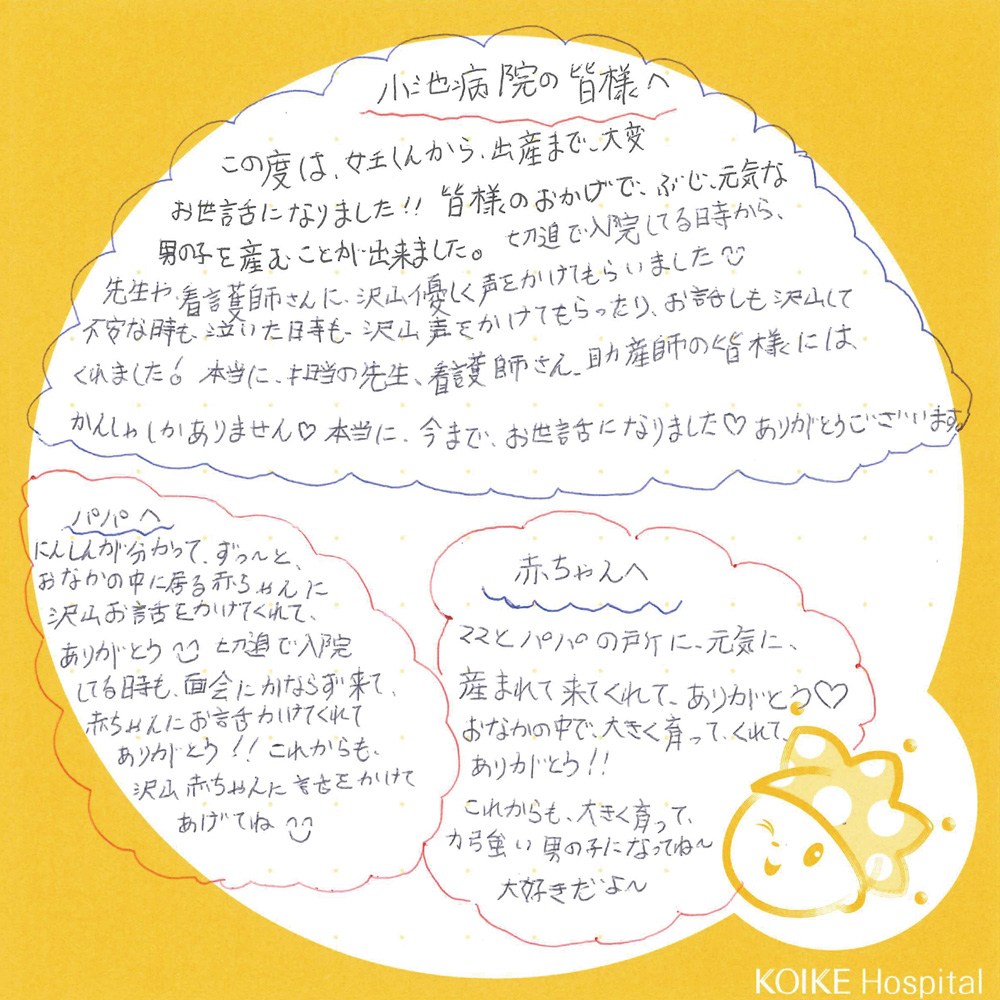 小池病院の皆様へ
この度は、妊しんから、出産まで、大変
お世話になりました!! 皆様のおかげで、ぶじ、元気な
男の子を産むことが出来ました。切迫で入院してる時から、
先生や、看護師さんに、沢山優しく声をかけてもらいました
不安な時も、泣いた日時も、沢山声をかけてもらったり、お話しも沢山して
くれました! 本当に、担当の先生、看護師さん、助産師の皆様には
かんしゃしかありません♡ 本当に、今まで、お世話になりました♡ありがとうございます。
パパへ
にんしんが分かって、ずっ〜と、
おなかの中に居る赤ちゃんに
沢山お話をかけてくれて、
ありがとう 切迫で入院
してる時も、面会にかならず来て、
赤ちゃんにお話かけてくれて
ありがとう!! これからも、
沢山赤ちゃんに言舌をかけて
あげてね
赤ちゃんへ
ママとパパの所に、元気に、
産まれて来てくれて、ありがとう♡
おなかの中で、大きく育って、くれて、
ありがとう!!
これからも、大きく育って、
力強い男の子になってね〜
大好きだよ〜
KOIKE Hospital